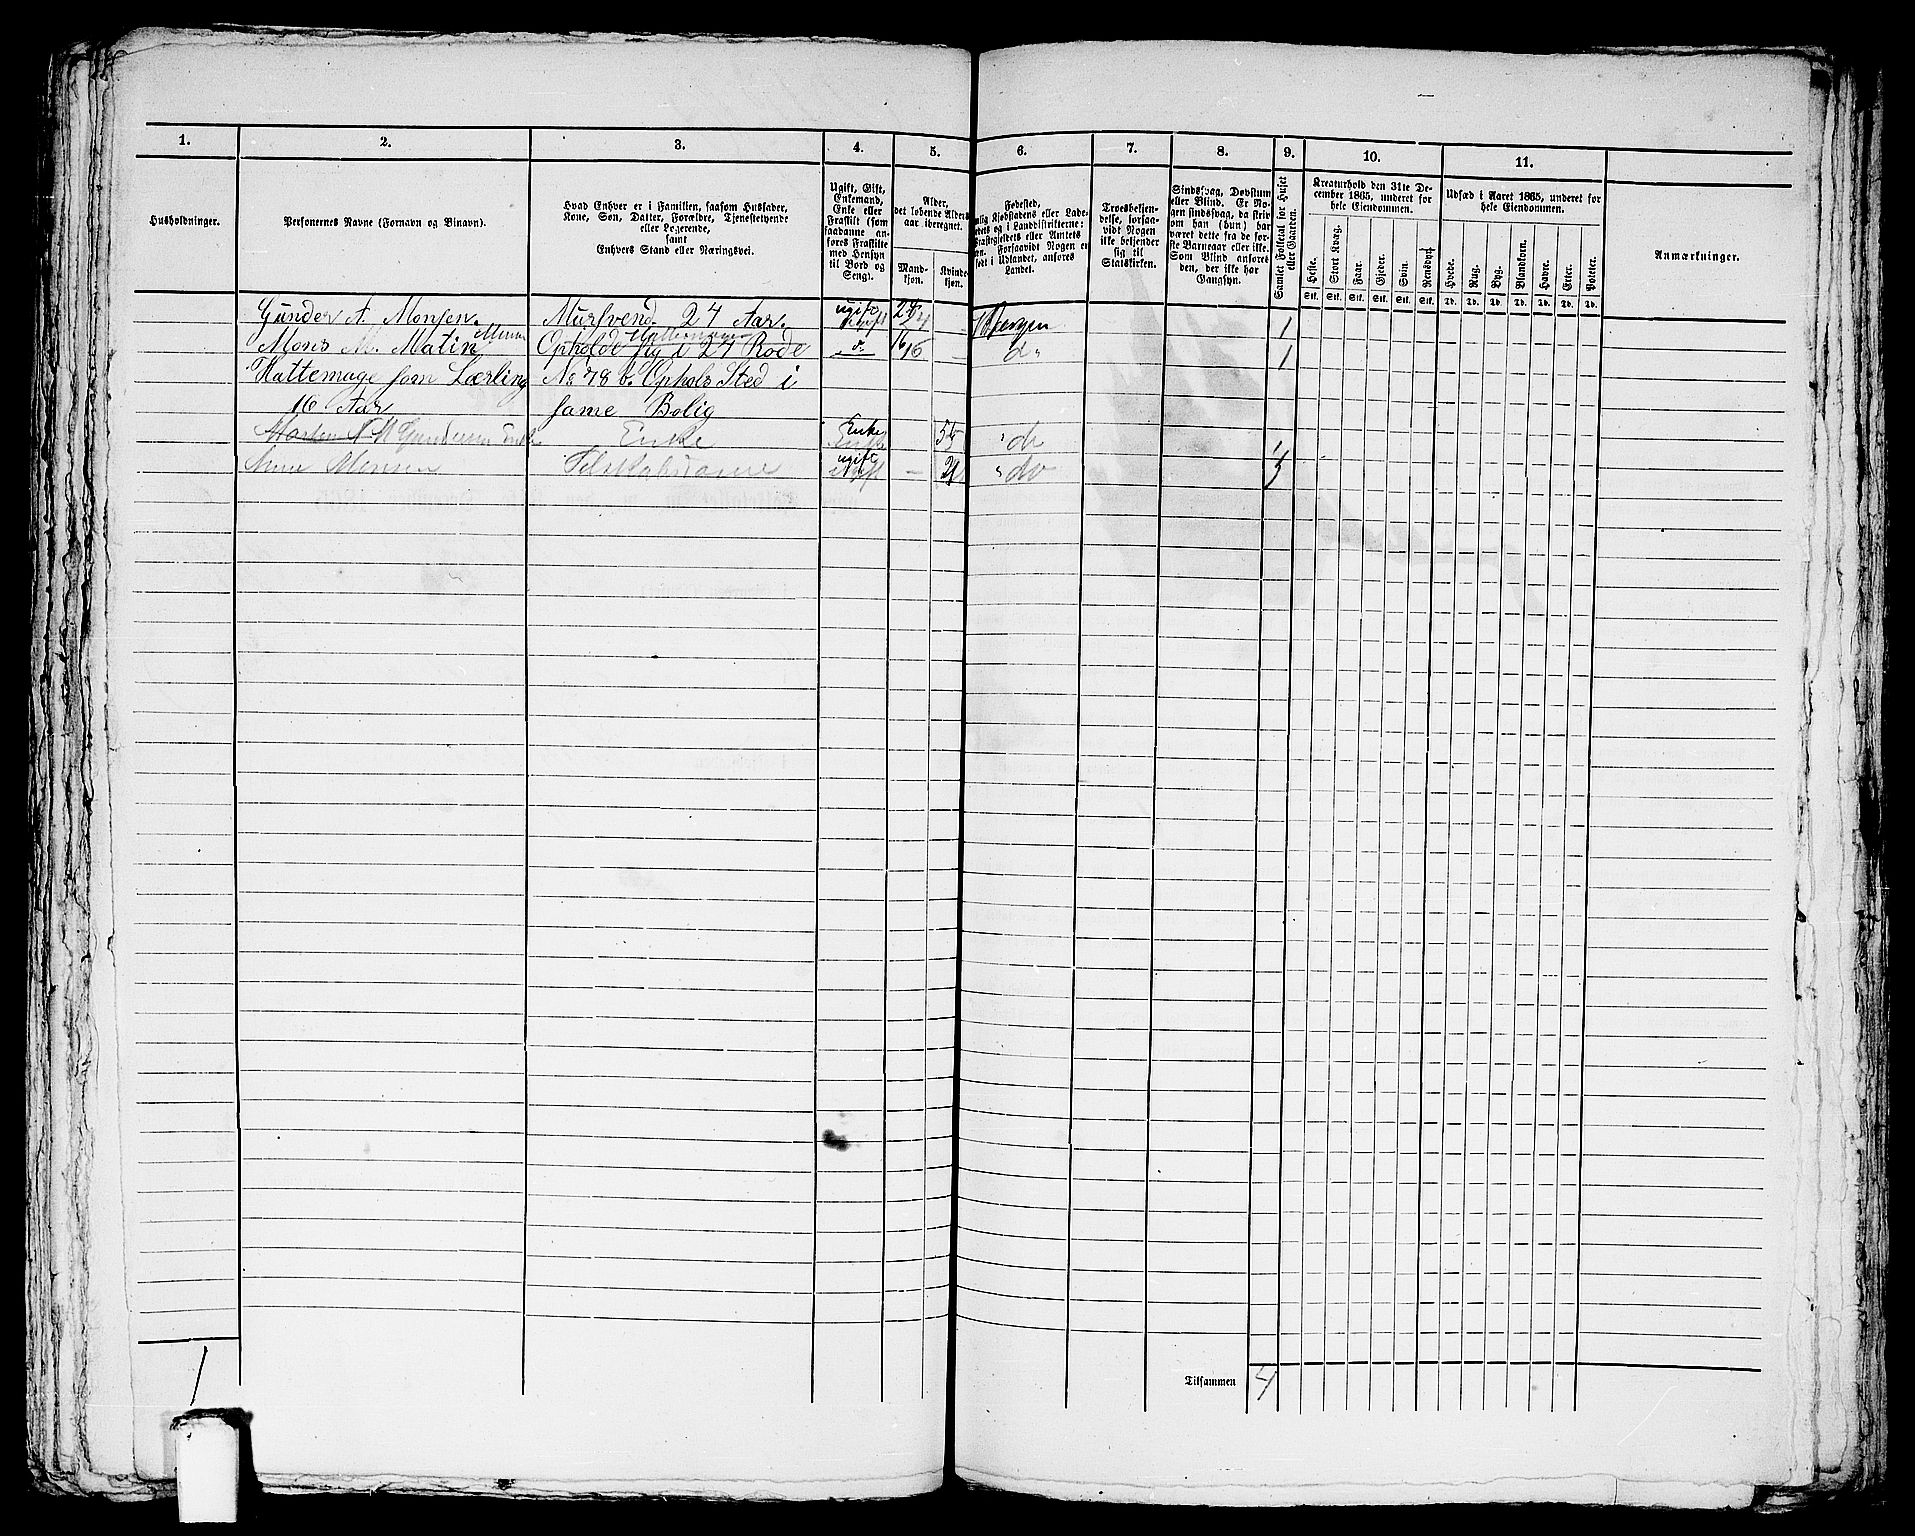 1. 2. 3. 4. 5. 6. 7. 8. 9. 10. 11.
Husholdninger.
Personernes Navne (Fornavn og Binavn).
Hvad Enhver er i Familien, saasom Husfader,
Kone, Søn, Datter, Forældre, Tjenestetyende
eller Logerende,
samt
Enhvers Stand eller Næringsvei.
Ugift, Gift,
Enkemand,
Enke eller
Fraskilt (som
saadanne an-
føres Fraskilte
med Hensyn
til Bord og
Seng).
Alder,
det løbende Alders-
aar iberegnet.
Mand-
kjøn.
Kvinde-
kjøn.
Fødested,
Kjøbstadens eller Lade-
og i Landdistrikterne:
Præstegjeldets eller Amtets
Forsaavidt Nogen er
født i Udlandet, anføres
Landet.
Troesbekjen-
delse, forsaa-
vidt Nogen
ikke bekjender
sig til
Statskirken.
Sindssvag, Døvstum
eller Blind. Er No-
gen sindssvag, da skriv
om han (hun) har
været dette fra de før-
ste Barneaar eller ikke.
Som Blind anføres
den, der ikke har
Gangsyn.
Samlet Folketal for Huset
eller Gaarden.
Kreaturhold den 31te De-
cember 1865, underet for
hele Eiendommen.
Heste. Stort Kvæg. Faar. Gjeder. Svin. Rensdyr.
Stk. Stk. Stk. Stk. Stk. Stk.
Udsæd i Aaret 1865, underet for
hele Eiendommen.
Hvede. Rug. Byg. Blandkorn. Havre. Erter. Poteter.
Td. Td. Td. Td. Td. Td. Td.
Anmærkninger.
Gunder A. Monsen. Mursvend. 24 Aar. ugift 24 Bergen 1
Mons M. Matin Opholdt sig i 24 Rode do 16 do 1
Hattemage som Lærling No 78 b. Ophols Sted i
16 Aar same Bolig
Enke Enke 55 do
Anne Monsen ugift do
Tilsammen 4
1